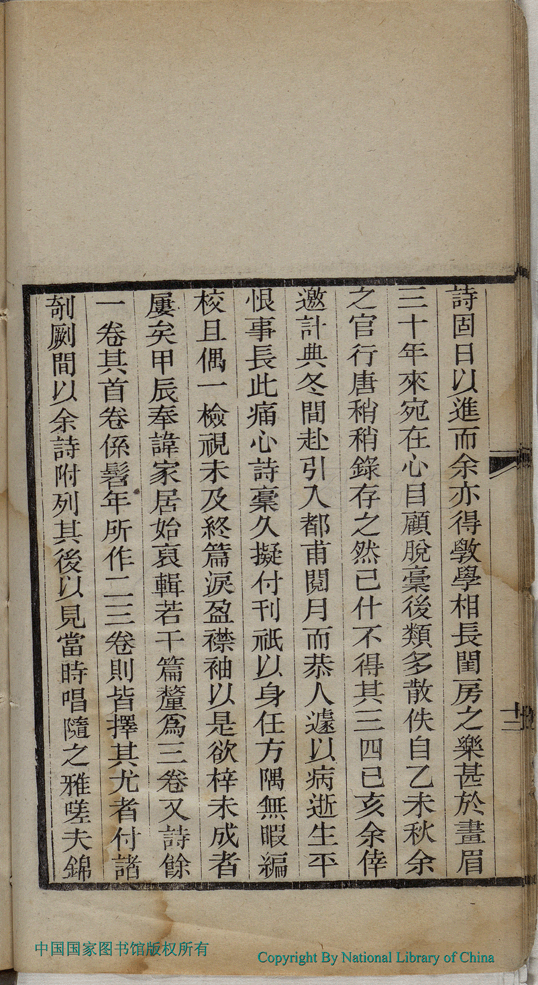 詩固日以進而余亦得斆學相長閨房之樂甚於畫眉
三十年來宛在心目顧脫稾後類多散佚自乙未秋余
之官行唐稍稍錄存之然已什不得其三四已亥余倅
邀計典冬間赴引入都甫閱月而恭人遽以病逝生平
恨事長此痛心詩稾久擬付刊祇以身任方隅無暇編
校且偶一檢視未及終篇淚盈襟袖以是欲梓未成者
屢矣甲辰奉諱家居始裒輯若干篇釐爲三卷又詩餘
一卷其首卷係髫年所作二三卷則皆擇其尤者付諸
剞劂間以余詩附列其後以見當時唱隨之雅嗟夫錦
十二
中国国家图书馆版权所有
Copyright By National Library of China